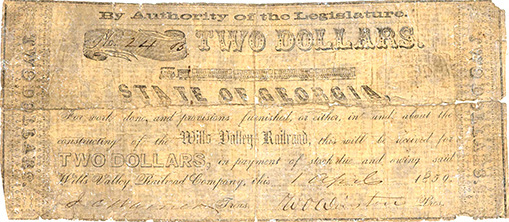 By Authority of the Legislature.
No. 24 B
TWO DOLLARS.
STATE OF GEORGIA,
For work done, and provisions furnished, or either, in and about the
constructing of the Wills Valley Railroad, this will be received for
TWO DOLLARS, in payment of stock due and owing said
Wills Valley Railroad Company, this 1 April 1859.
Treas. Pres.
TWO DOLLARS
TWO DOLLARS